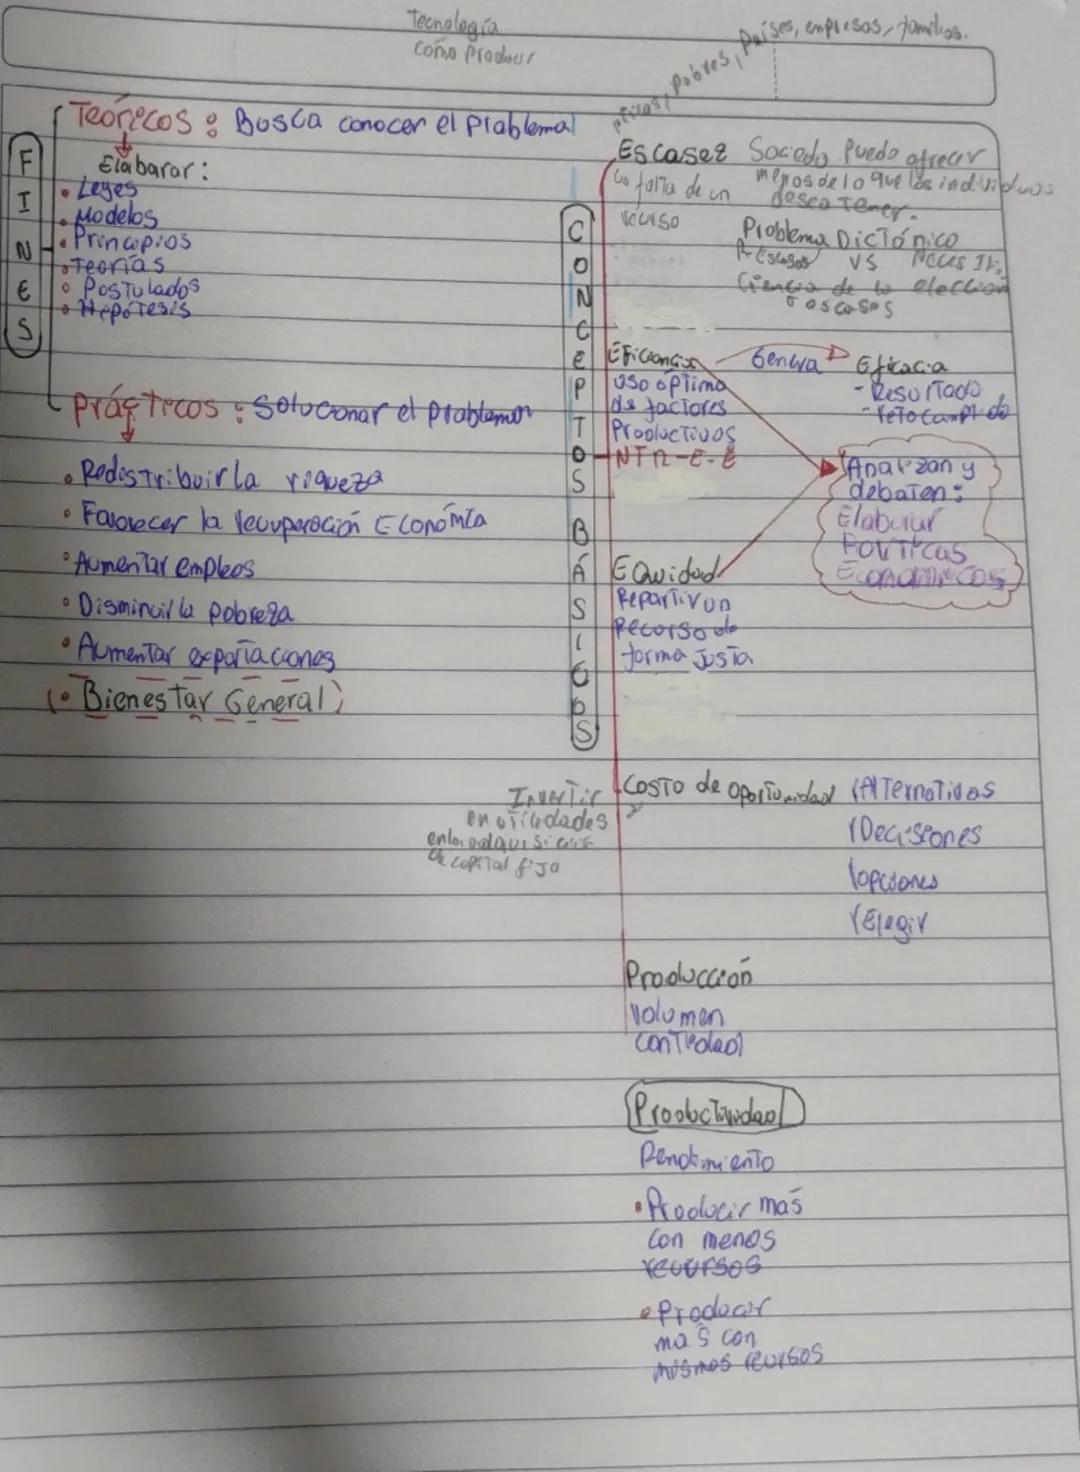 Tecnología
como producir
ricos, Pobres, Países, empresas, familias.
FINES
Teóricos : Busca conocer el Problema
Elaborar:
• Leyes
• Modelos
• Principios
• Teorías
• Postulados
• Hipótesis
Prácticos : Solucionar el problema
• Redistribuir la riqueza
• Favorecer la recuperación Económica
• Aumentar empleos
• Disminuir la pobreza
• Aumentar exportaciones
(• Bienestar General)
CONCEPTOS BÁSICOS
Escasez
la falta de un
recurso
Sociedad Puede ofrecer
menos de lo que los individuos
desea Tener.
Problema Dictónico
vs
Ciencia de la elección
o escases
Eficiencia
uso óptimo
de factores
Productivos
Genera
Eficacia
- Resultado
- reto cumplido
Analizan y
debaten:
Elaborar
Políticas
Económicas
Equidad
Repartir un
Recurso de
forma Justa
Costo de oportunidad
Invertir
en utilidades
en la adquisición
de capital fijo
(Alternativas
(Decisiones
(opciones
(Elegir
Producción
Volumen
Cantidad
Productividad
Rendimiento
• Producir más
con menos
recursos
• Producir
más con
mismos recursos